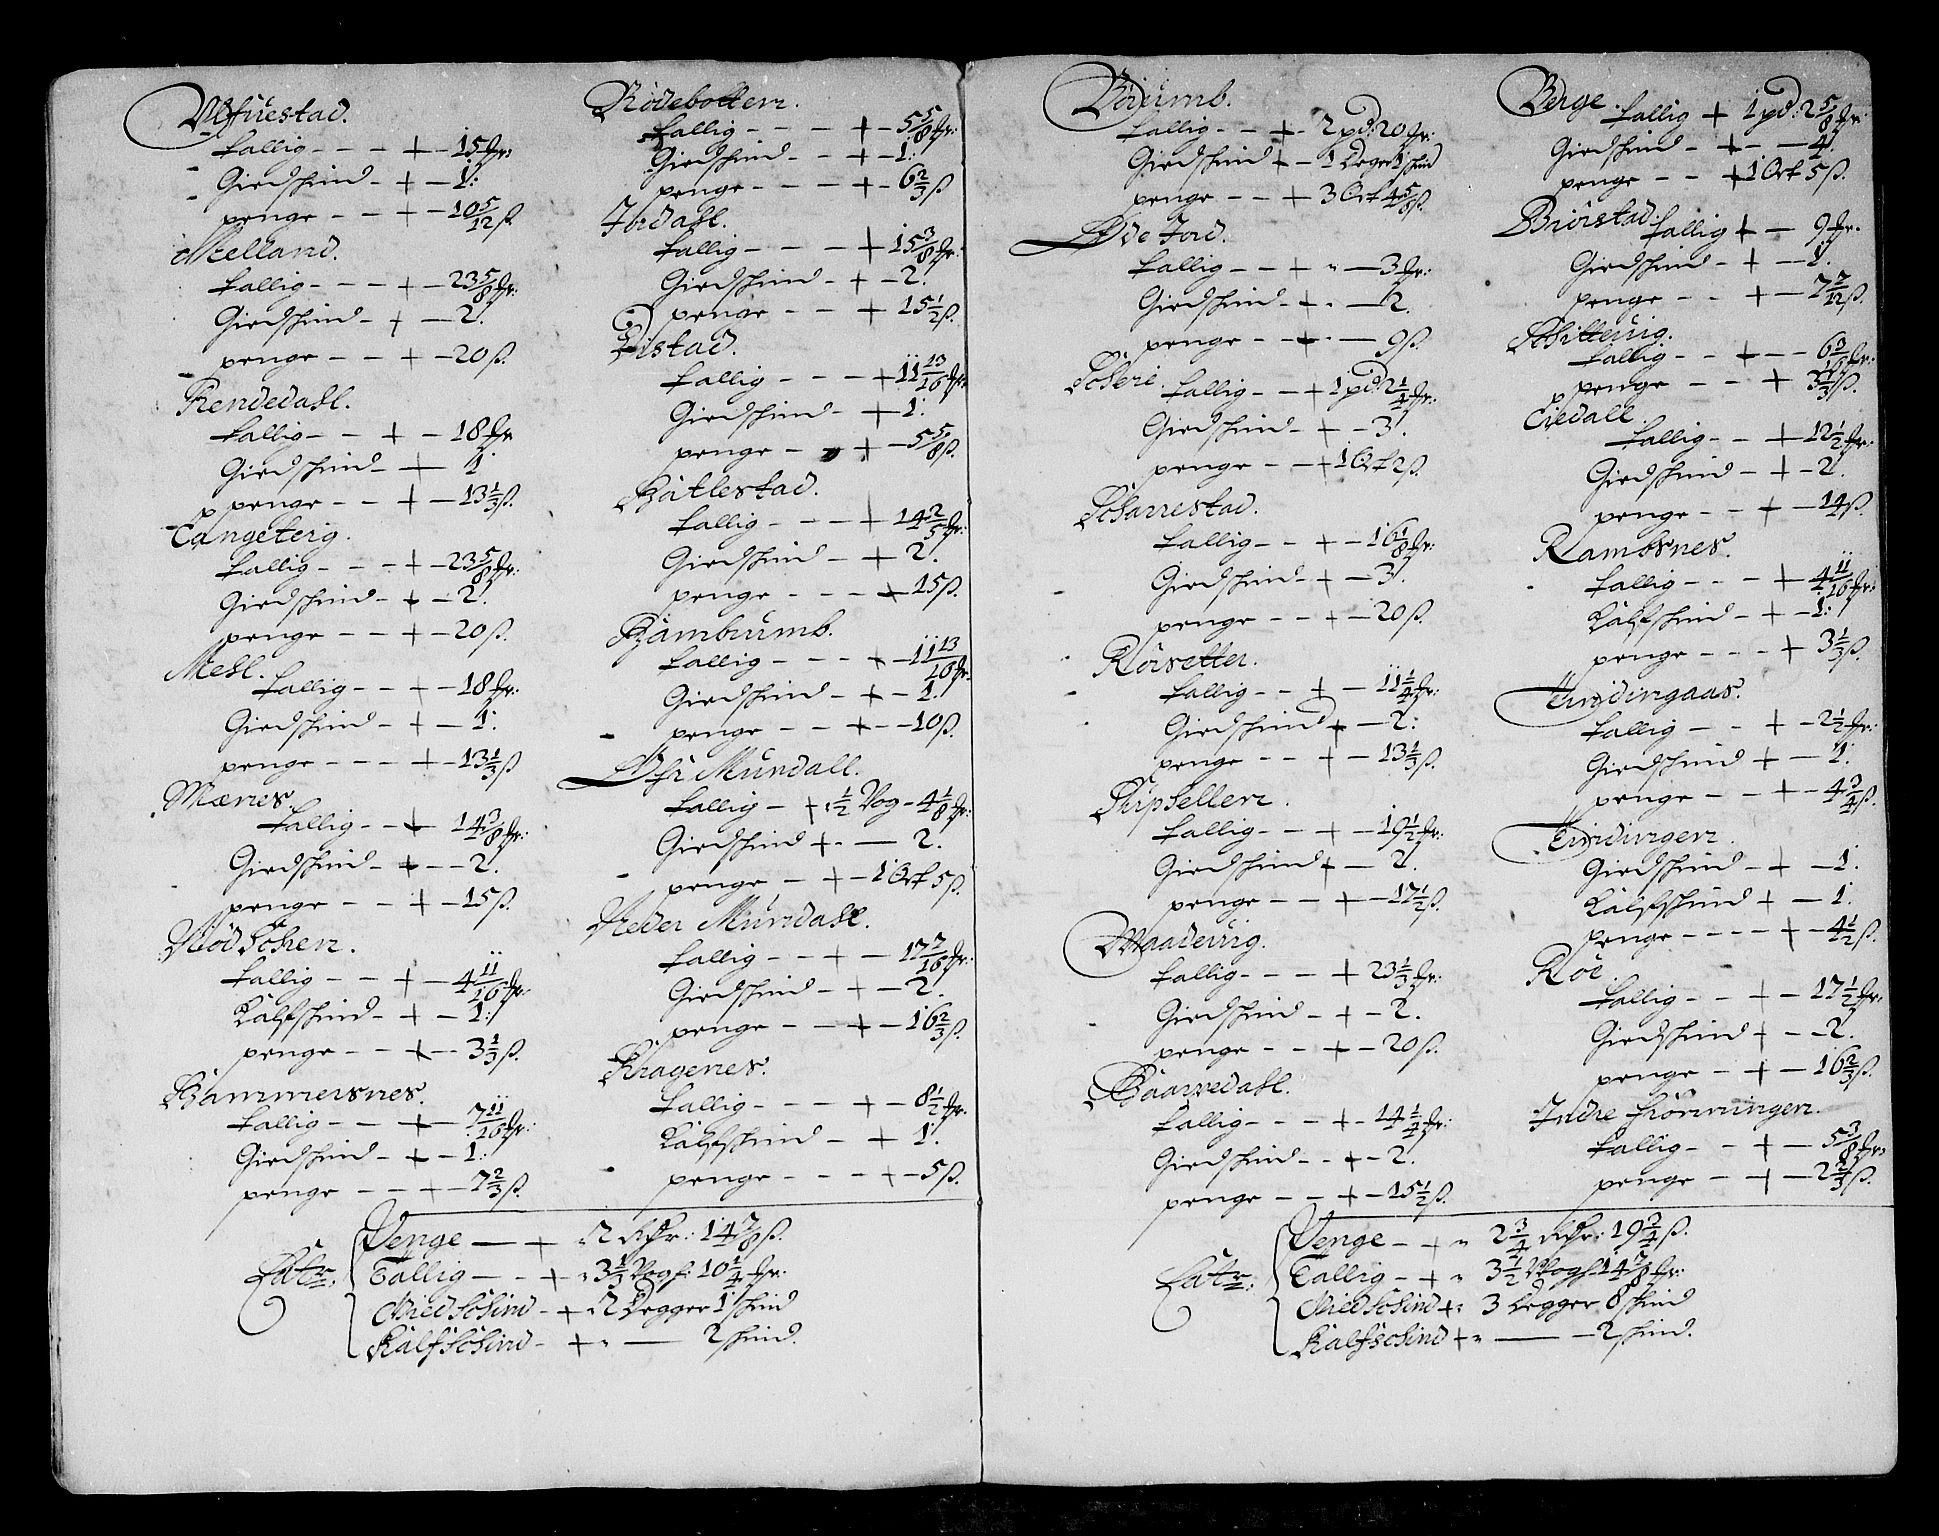 Alfuestad.
Tallig - - - + - 15 fr:
Giedschind - + - 1:
penge - - + - 10 5/12 ß
Melland.
Tallig - - - + - 23 5/8 fr:
Giedschind - + - 2.
penge - - + - 20 ß.
Rendedahl.
Tallig - - + - 18 fr
Giedschind - + 1
penge - - + - 13 1/3 ß.
Tangeterig.
Tallig - - - + - 23 5/8 fr:
Giedschind - + - 2.
penge - - + - 20 ß.
Mehl.
Tallig - - + - 18 fr:
Giedschind - + - 1:
penge - - - + - 13 1/3 ß
Mænes.
Tallig - - + 14 3/8 fr:
Giedschind - + - 2.
penge - - + - 15 ß.
Nödschen.
Tallig - - + - 4 11/16 fr:
Kalfschind - + - 1:
penge - - + - 3 1/3 ß.
Hammersnes.
Tallig - - + - 7 11/16 fr:
Giedschind - + - 1:
penge - - - + - 7 2/3 ß.
Rödebotten.
Tallig - - - + - 5 5/8 fr:
Giedschind - - + - 1:
penge - - - + - 6 2/3 ß
Jordahl.
Tallig - - - + 15 3/8 fr:
Giedschind - + - 2.
penge - - + 15 1/2 ß.
Distad.
Tallig - - - + 11 13/16 fr:
Giedschind - + 1.
penge - + - 5 5/8 ß.
Hatlestad.
Tallig - - - + 14 2/5 fr:
Giedschind - + 2.
penge - - - + 15 ß.
Hambrumb.
Tallig - - - + - 11 13/16 fr.
Giedschind - + - 1.
penge - - - + - 10 ß.
Öfr Mundall.
Tallig - + 1/2 Vog - 4 1/8 fr:
Giedschind + - 2.
penge - + - 1 Ort 5 ß.
Neder Mundahl.
Tallig - - - + - 17 7/16 fr:
Giedschind - + - 2.
penge - - - + - 16 2/3 ß.
Kragenes.
Tallig - - - + - 8 1/2 fr.
Kalfschind - + 1.
penge - - - + - 5 ß.
Latr:
Penge - + 2 Rdr: 14 7/8 ß.
Tallig - - + 3 1/3 Vogf: 10 1/4 fr:
Giedschind - + 2 Degger 1 schind
Kalfschind - + - 2 schind.
Börumb.
Tallig - - + - 2 pd: 20 fr:
Giedschind + - 1 Deger 1 schind
penge - - + 3 Ort 4 5/8 ß.
Öde Jord.
Tallig - - + - 3 fr:
Giedschind - + - 2.
penge - - + - 9 ß.
Scheri.
Tallig - - + 1 pd: 2 1/4 fr:
Giedschind - + - 3.
penge - - + 1 Ort 2 ß.
Scharrestad.
Tallig - - + - 16 1/8 fr:
Giedschind - + - 3.
penge - - + - 20 ß.
Rörsetter.
Tallig - - + - 11 1/4 fr:
Giedschind + - 2:
penge - - + - 13 1/3 ß.
Tallig - - + - 19 1/2 fr:
Giedschind + - 2.
penge - - + - 17 1/2 ß.
Maaderig.
Tallig - - - + 23 1/3 fr:
Giedschind - + - 2.
penge - - + - 20 ß.
Baarredahl.
Tallig - - - + - 14 1/4 fr:
Giedschind - - + - 2.
penge - - + - 15 1/2 ß.
Berge.
Tallig + 1 pd: 2 5/8 fr.
Giedschind - + - - 4.
penge - - + 1 Ort 5 ß.
Briörstad.
Tallig + - 9 fr.
Giedschind - + - 1.
penge - - + - 7 7/12 ß.
Schitterig.
Tallig - - + - - 6 3/8 fr:
penge - - + 3 1/3 ß.
Tallig - - + - 12 1/2 fr:
Giedschind - + - 2.
penge - - + - 14 ß.
Rambsnes.
Tallig - - - + 4 11/16 fr:
Kalfschind - + - 1:
penge - - - + 3 1/3 ß.
Tindingaas.
Tallig - - + - 2 1/2 fr:
Giedschind + - 1:
penge - - + - 4 3/4 ß.
Tindingen.
Giedschind - + - 1.
Kalfschind + - 1.
penge - - - - + - 4 1/2 ß.
Röe.
Tallig - - + - 17 1/2 fr.
Giedschind + - - 2.
penge - - + - 16 2/3 ß.
Indre Frönningen.
Tallig - - + - 5 3/8 fr:
penge - - + - 2 2/3 ß.
Latr:
Penge - + 2 3/4 Rdr: 19 3/4 ß.
Tallig - + 3 1/2 Vogf 14 7/8 fr:
Giedschind + 3 Degger 8 schind
Kalfschind + - - 2 schind.